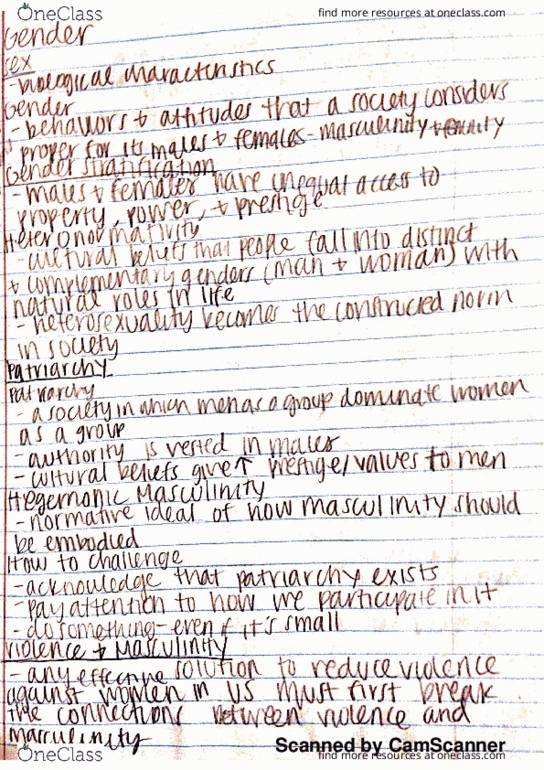 OneClass
find more resources at oneclass.com
Gender
Sex
- biological characteristics
Gender
- behaviors + attitudes that a society considers
proper for its males + females - masculinity +
Gender stratification
- males + females have unequal access to
property, power, + prestige
Heteronormativity
- cultural beliefs that people fall into distinct
+ complementary genders (man + woman) with
natural roles in life
- heterosexuality becomes the constructed norm
in society
Patriarchy
Patriarchy
- a society in which men as a group dominate women
as a group
- authority is vested in males
- cultural beliefs give ↑ prestige/values to men
Hegemonic Masculinity
- normative ideal of how masculinity should
be embodied
How to challenge
- acknowledge that patriarchy exists
- pay attention to how we participate in it
- do something - even if it's small
Violence + Masculinity
- any effective solution to reduce violence
against women in US must first break
the connections between violence and
masculinity
OneClass
Scanned by CamScanner
find more resources at oneclass.com